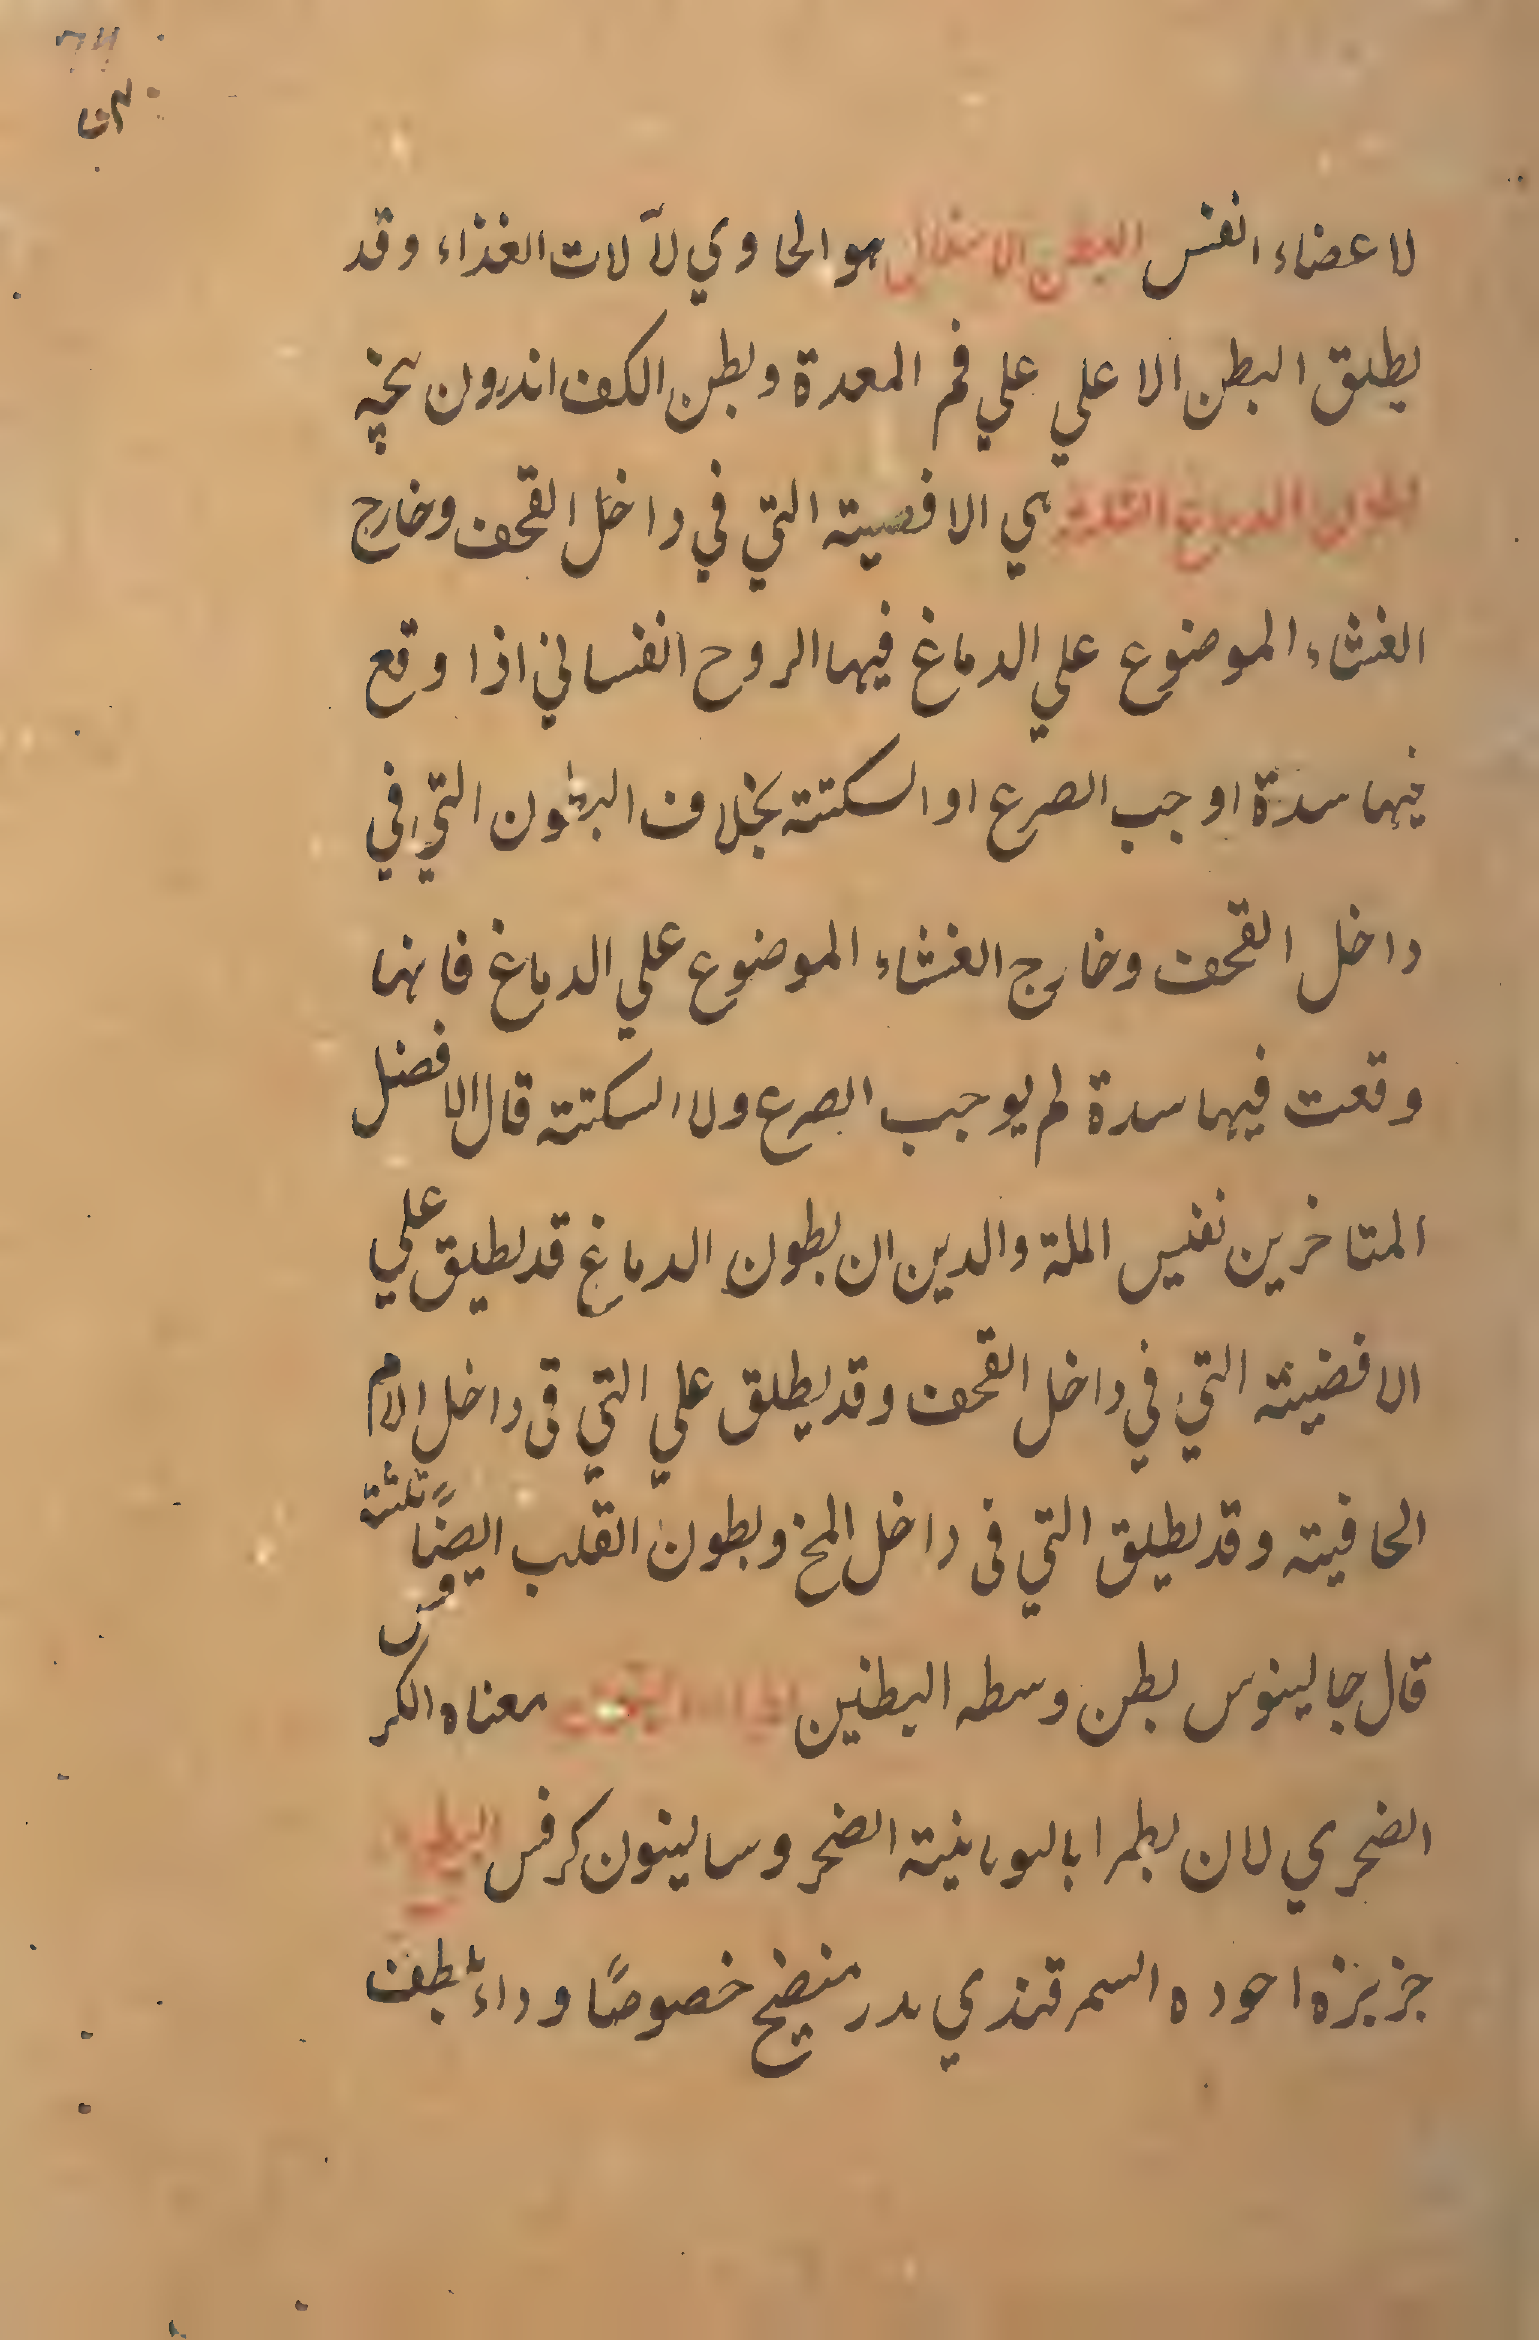 لاعضاء النفس البطن الاسفل هو الحاوي لآلات الغذاء وقد
يطلق البطن الاعلي علي فم المعدة وبطن الكف اندرون پنچه
بطون الدماغ الثلاثة هي الافضية التي في داخل القحف وخارج
الغشاء الموضوع علي الدماغ فيها الروح النفساني اذا وقع
فيها سدة اوجب الصرع او السكتة بخلاف البطون التي في
داخل القحف وخارج الغشاء الموضوع علي الدماغ فانها
وقعت فيها سدة لم يوجب الصرع ولا السكتة قال الافضل
المتاخرين نفيس الملة والدين ان بطون الدماغ قد يطلق علي
الافضية التي في داخل القحف وقد يطلق علي التي في داخل الام
الجافية وقد يطلق التي في داخل المخ وبطون القلب ايضًا ثلثة
قال جالينوس بطن وسطه البطنين معناه الكرفس
الضحري لان بطرا باليونانية الضحر وسالينون كرفس البطيخ
خربزه اجوده السمرقندي مدر منضج خصوصًا وداء لطف